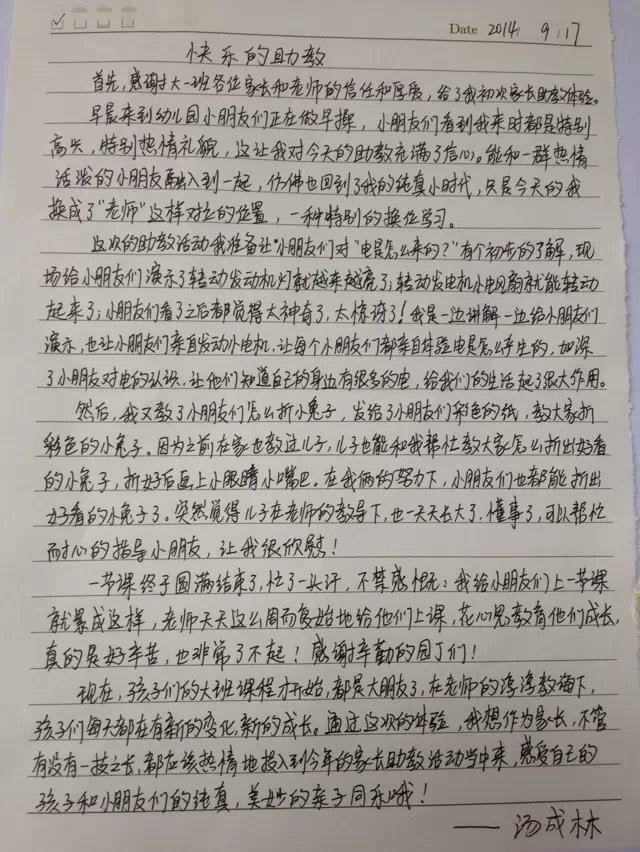 Date 2014 9.17
快乐的助教
首先,感谢大一班各位家长和老师的信任和厚爱,给了我初次家长助教体验。
早晨来到幼儿园小朋友们正在做早操,小朋友们看到我来时都是特别
高兴,特别热情礼貌,这让我对今天的助教充满了信心。能和一群热情
活泼的小朋友融入到一起,仿佛也回到了我的纯真小时代,只是今天的我
换成了"老师"这样对立的位置,一种特别的换位学习。
这次的助教活动我准备让小朋友们对"电是怎么来的?"有个初步的了解,现
场给小朋友们演示了转动发动机灯就越来越亮了;转动发电机小电风扇就能转动
起来了;小朋友们看了之后都觉得太神奇了,太惊讶了!我是一边讲解一边给小朋友们
演示,也让小朋友们亲自发动小电机,让每个小朋友们都亲自体验电是怎么产生的,加深
了小朋友对电的认识,让他们知道自己的身边有很多的电,给我们的生活起了很大作用。
然后,我又教了小朋友们怎么折小兔子,发给了小朋友们彩色的纸,教大家折
彩色的小兔子。因为之前在家也教过儿子,儿子也能和我帮忙教大家怎么折出好看
的小兔子,折好后画上小眼睛小嘴巴。在我俩的努力下,小朋友们也都能折出
好看的小兔子了。突然觉得儿子在老师的教导下,也一天天长大了,懂事了,可以帮忙
耐心的指导小朋友,让我很欣慰!
一节课终于圆满结束了,忙了一头汗,不禁感慨:我给小朋友们上一节课
就累成这样,老师天天这么周而复始地给他们上课,花心思教育他们成长,
真的是好辛苦,也非常了不起!感谢辛勤的园丁们!
现在,孩子们的大班课程才开始,都是大朋友了,在老师的谆谆教诲下,
孩子们每天都在有新的变化,新的成长。通过这次的体验,我想作为家长,不管
有没有一技之长,都应该热情地投入到今年的家长助教活动当中来,感受自己的
孩子和小朋友们的纯真,美妙的亲子同乐哦!
——汤成林